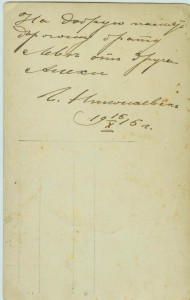 На добрую память
дорогому брату
Лёвѣ отъ друга
Алеши
г. Николаевъ
19 15/X 15 г.